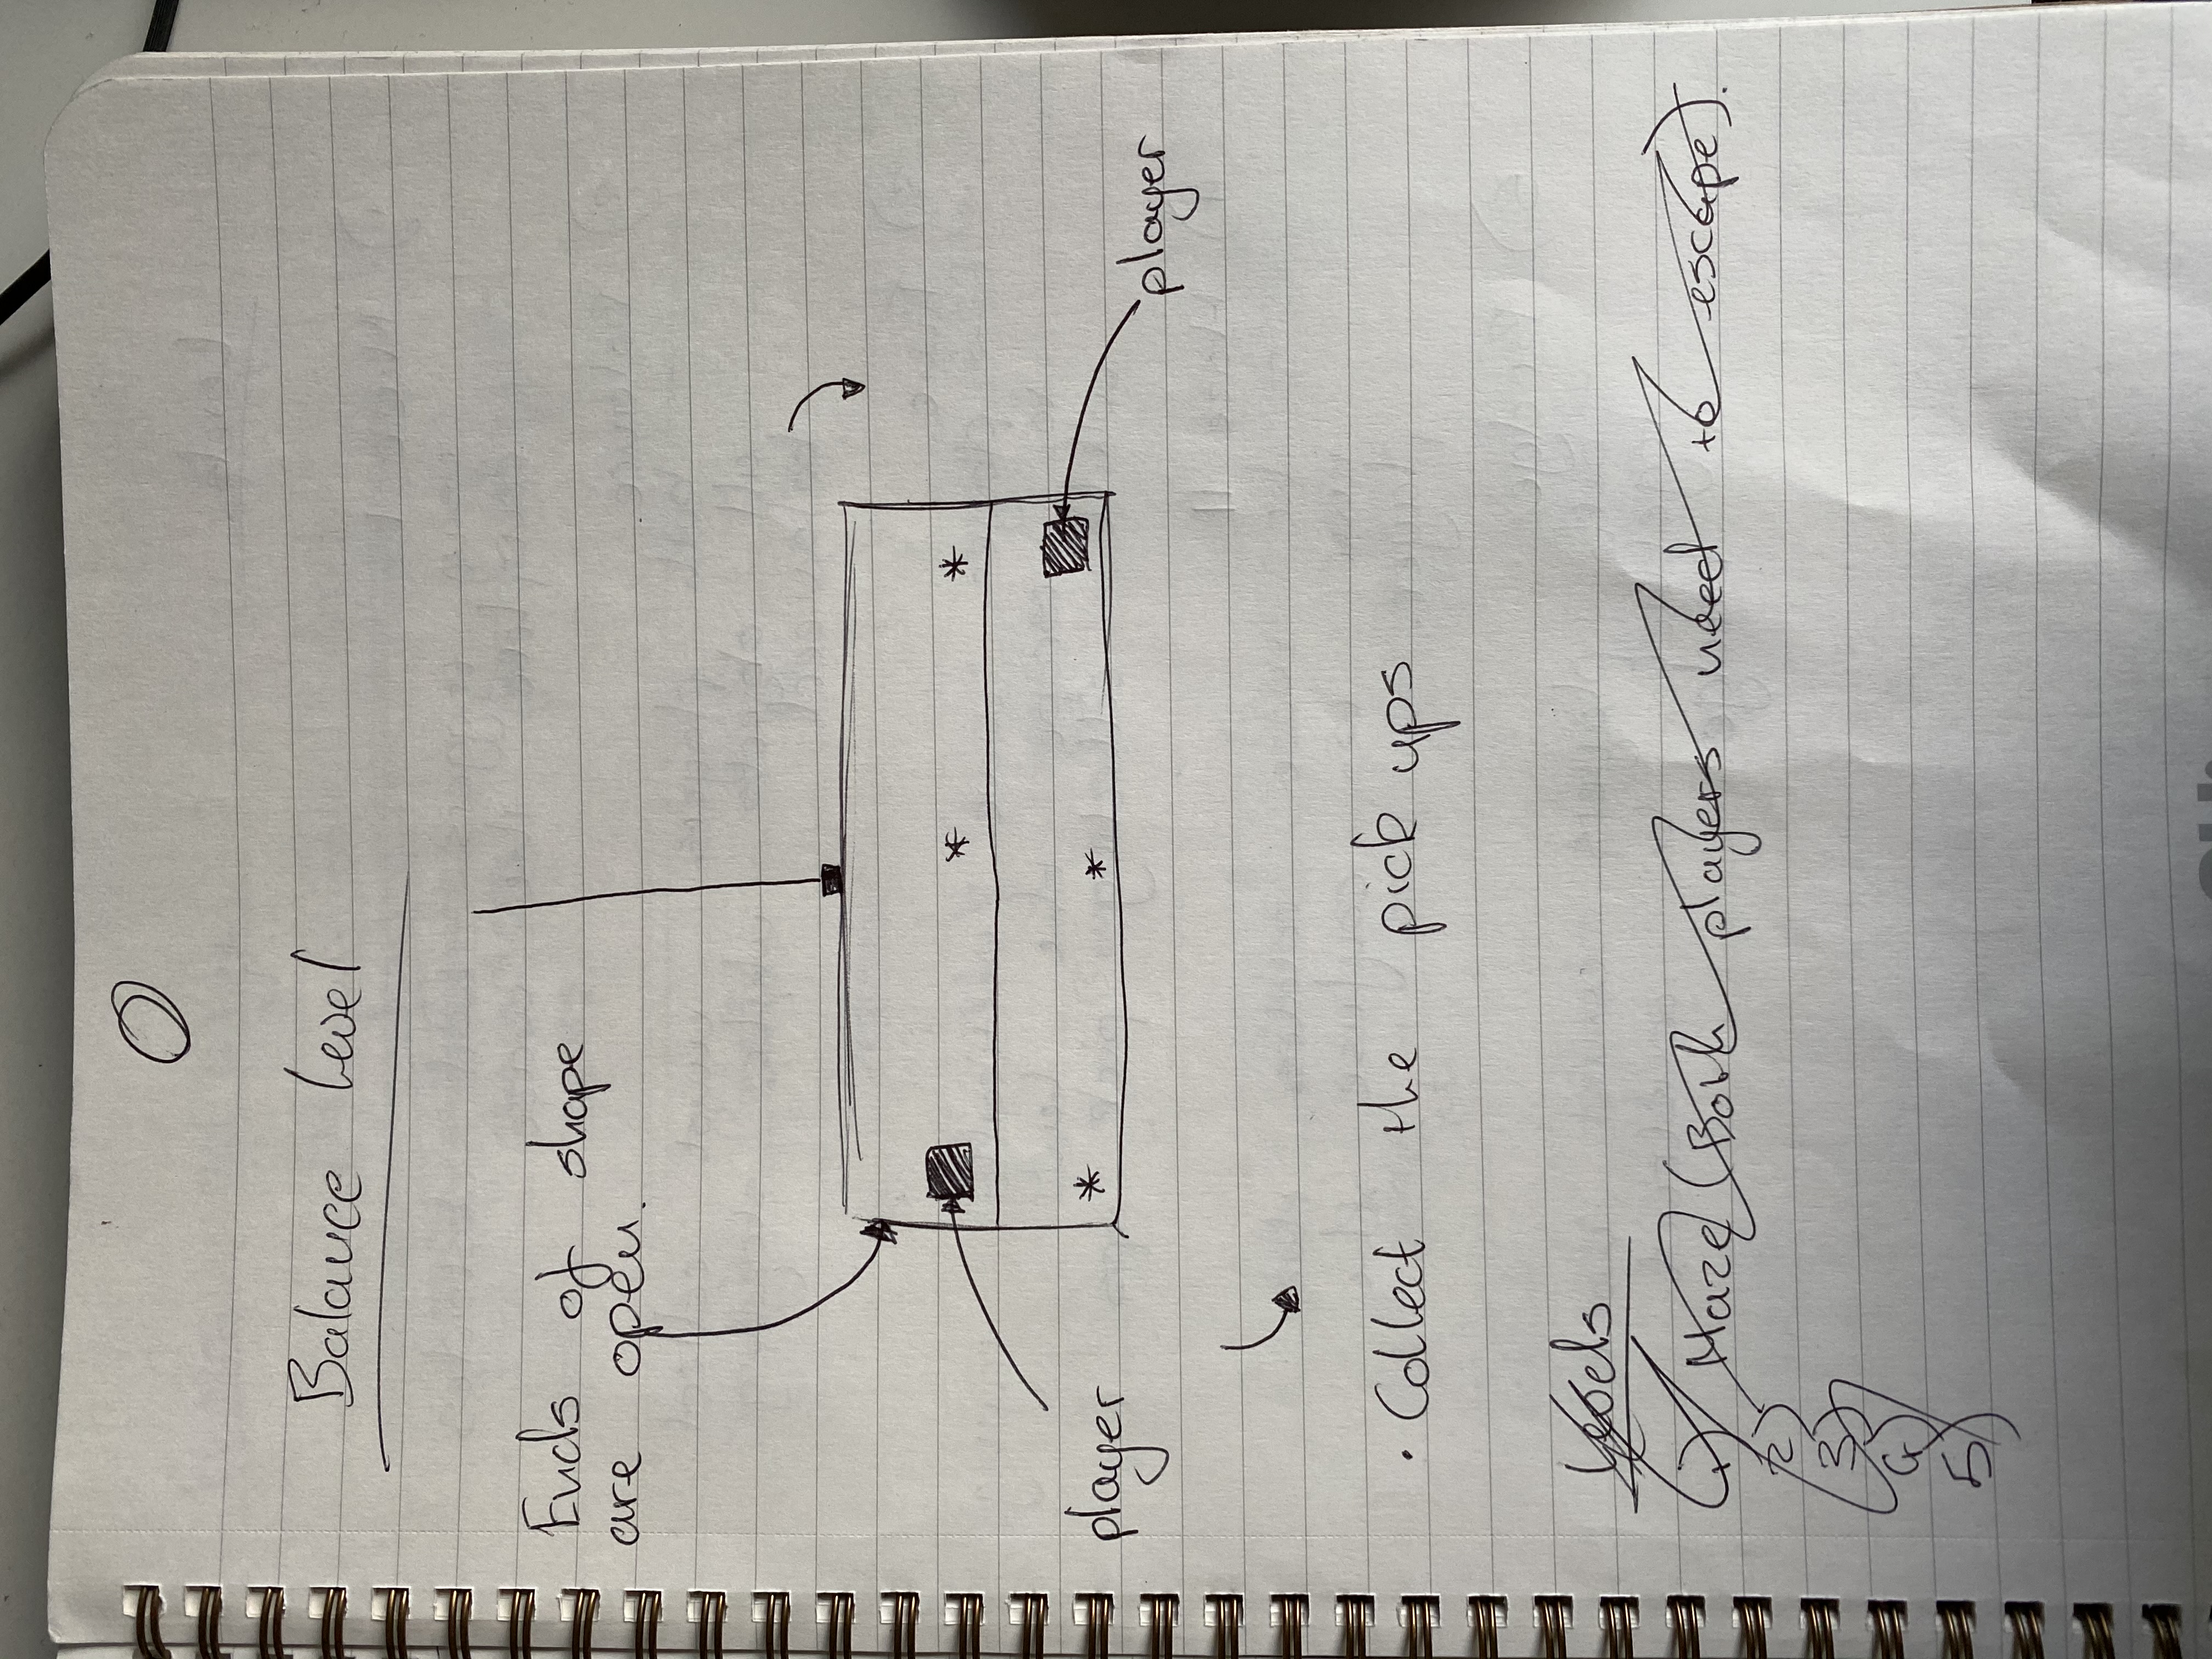 Balance level
Ends of shape
are open.
player
player
· Collect the pick ups
Levels
1) Maze (Both players need to escape).
2)
3)
4)
5)